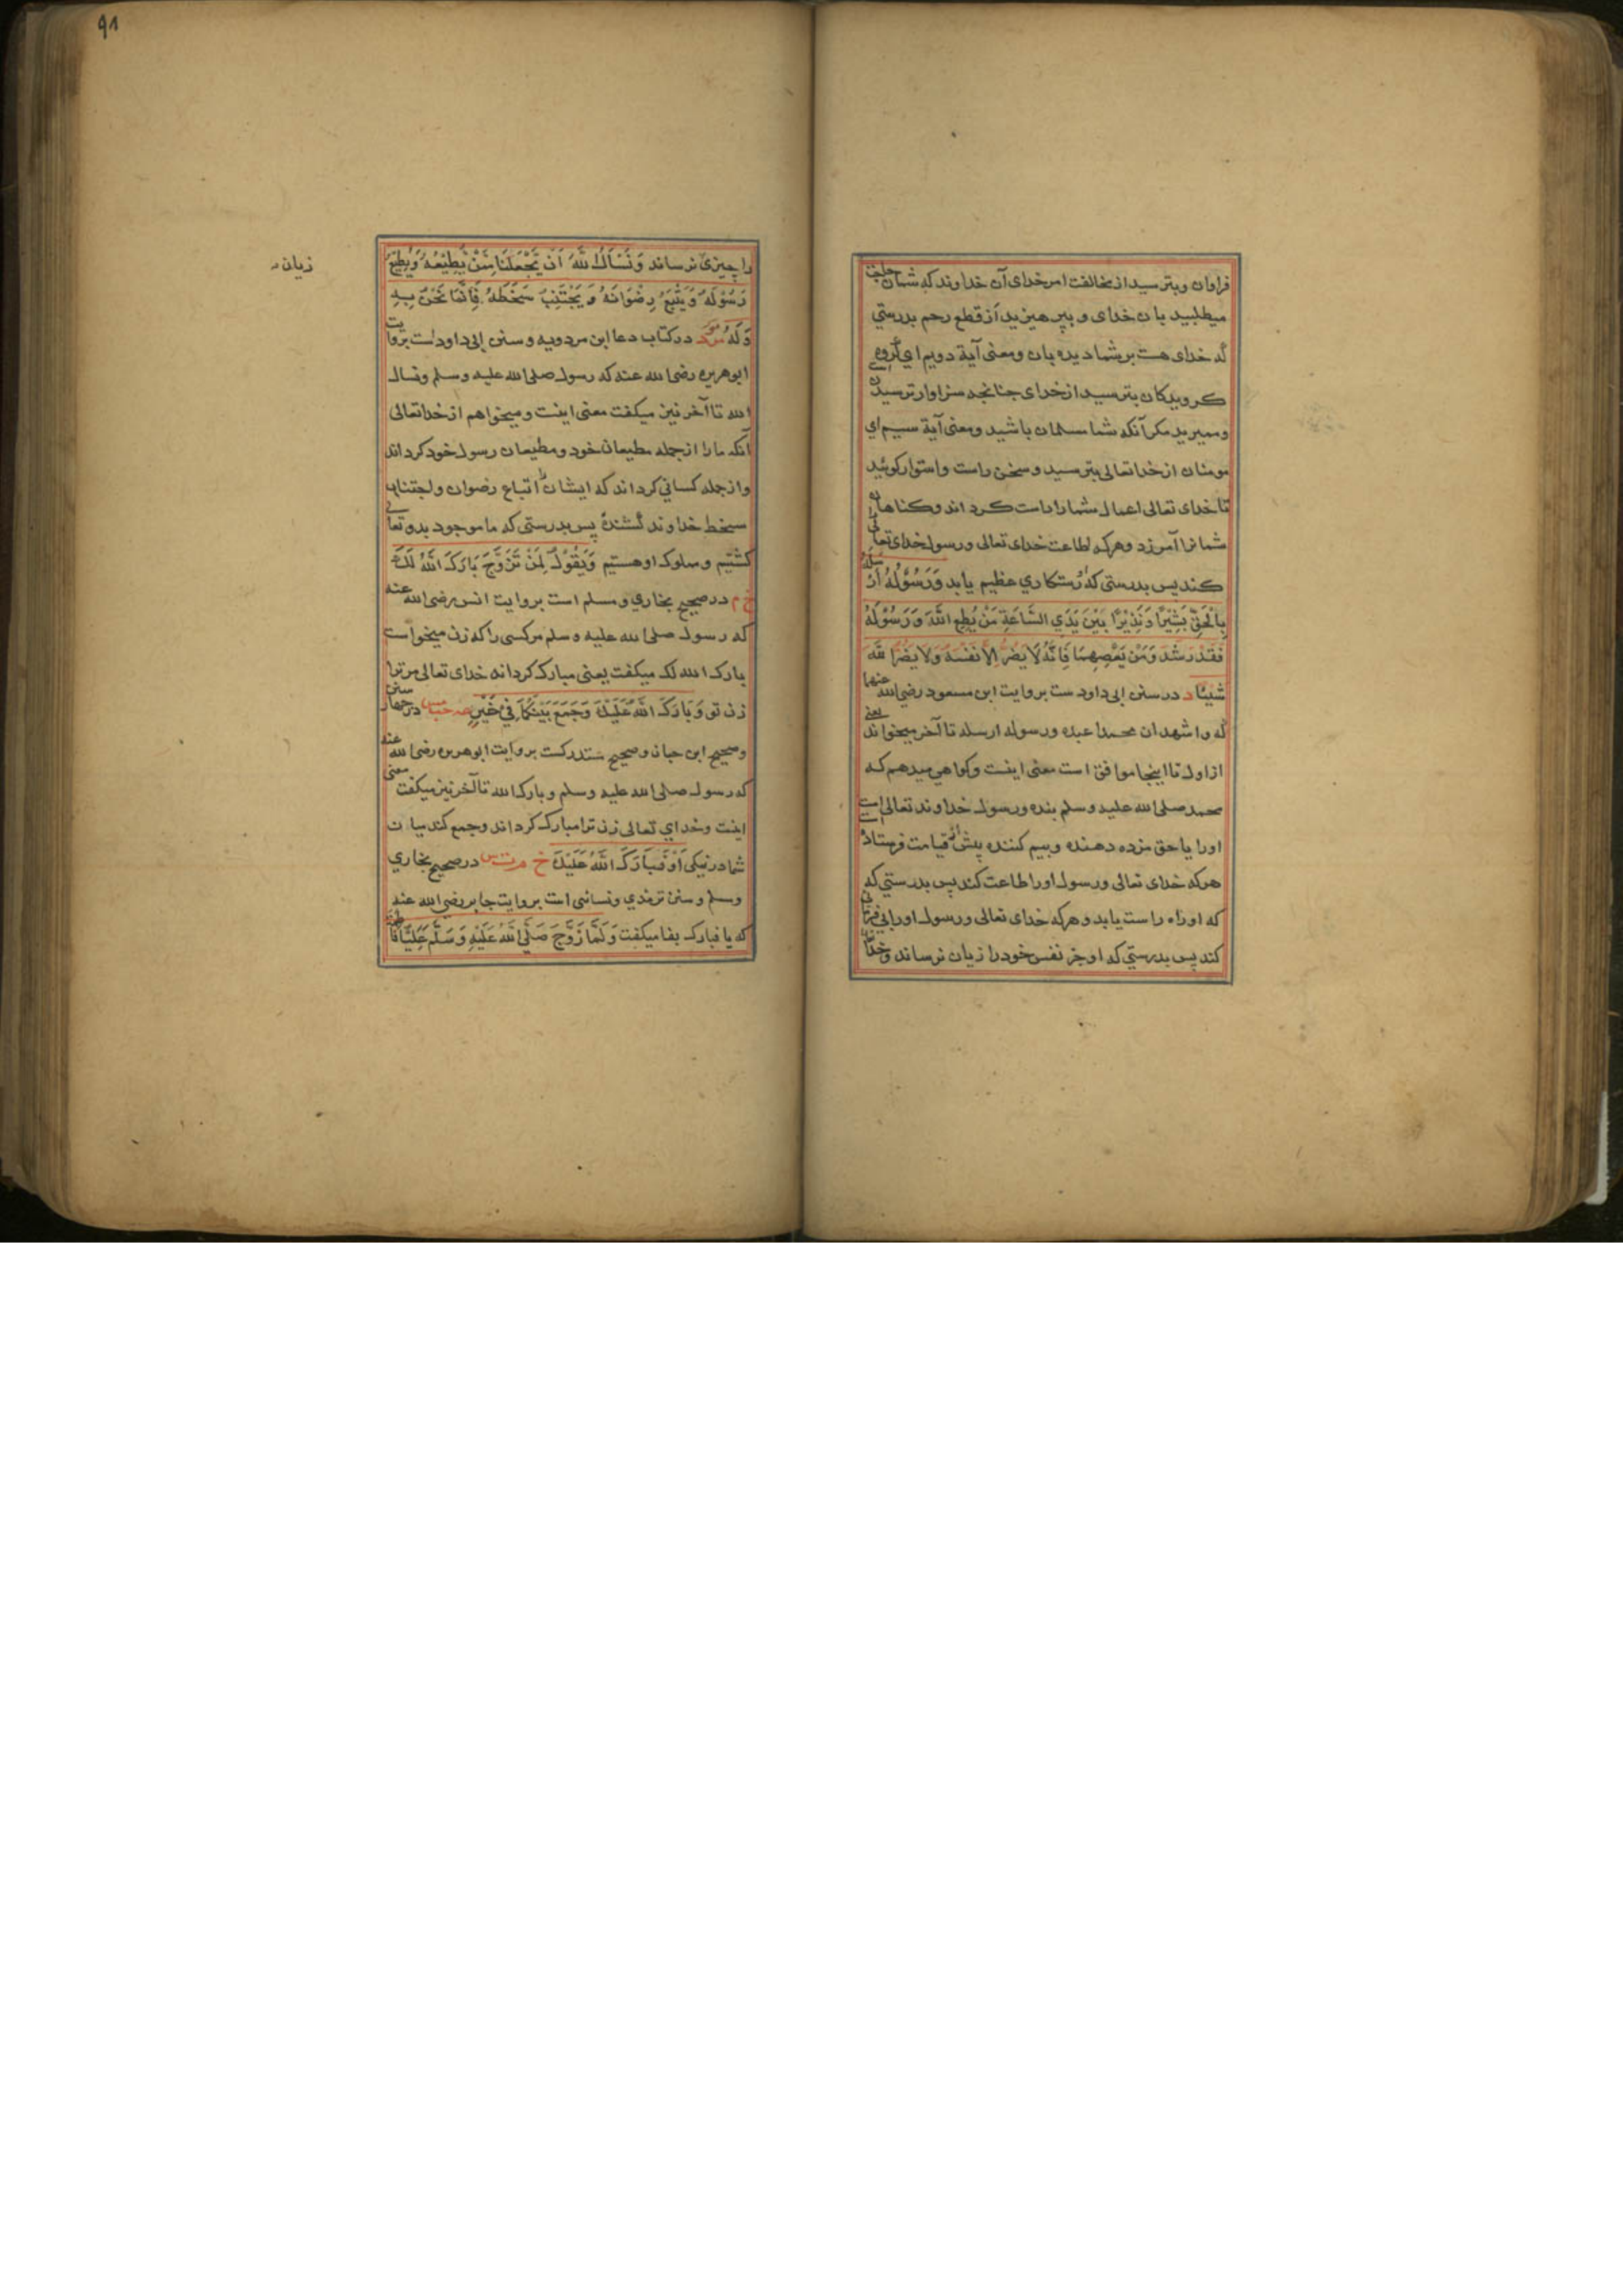 فراوان وبترسيد از مخالفت امر خداى آن خداوند كه شما حاجت
ميطلبيد بان خداى و بپرهيزيد از قطع رحم بدرستي
كه خداى هست بر شما ديده بان ومعنى آية دويم اي گروه
كرويدكان بترسيد از خداى جنانجه سزاوار ترسيدن
ومميريد مكر آنكه شما مسلمان باشيد ومعنى آية سيم اي
مومنان از خدا تعالى بترسيد و سخن راست واستوار كوئيد
تا خداى تعالى اعمال شما را راست كرداند وكناهان
شما را آمرزد وهركه اطاعت خداى تعالى ورسول خداى تعالى
كند پس بدرستى كه رستكاري عظيم يابد وَرَسُوْلُهُ اَرْسَلَهُ
بِالْحَقِّ بَشِيْرًا وَنَذِيْرًا بَيْنَ يَدَيِ السَّاعَةِ مَنْ يُطِعِ اللهَ وَرَسُوْلَهُ
فَقَدْ رَشَدَ وَمَنْ يَعْصِهِمَا فَاِنَّهُ لَا يَضُرُّ اِلَّا نَفْسَهُ وَلَا يَضُرُّ اللهَ
شَيْئًا د در سنن ابى داود ست بروايت ابن مسعود رضى الله عنهما
كه واشهد ان محمدا عبده ورسوله ارسله تا آخر ميخواند يعنى
از اول تا اينجا موافق است معنى اينست وكواهى ميدهم كه
محمد صلى الله عليه وسلم بنده ورسول خداوند تعالى است
اورا با حق مزده دهنده وبيم كننده پيش از قيامت فرستاد
هركه خداى تعالى ورسول اورا اطاعت كند پس بدرستي كه
كه او راه راست يابد وهركه خداى تعالى ورسول اورا بى فرمانى
كند پس بدرستي كه او جز نفس خود را زيان نرساند وخدا
زيان
را چيزى نرساند وَنَسْاَلُ اللهَ اَنْ يَجْعَلَنَا مِمَّنْ يُطِيْعُهُ وَيُطِيْعُ
رَسُوْلَهُ وَيَتَّبِعُ رِضْوَانَهُ وَيَجْتَنِبُ سَخَطَهُ فَاِنَّمَا نَحْنُ بِهِ
وَلَهُ مو مر د در كتاب دعا ابن مردويه و سنن ابى داود است بروايت
ابو هريره رضى الله عنه كه رسول صلى الله عليه وسلم ونسال
الله تا آخر نيز ميكفت معنى اينست و ميخواهم از خدا تعالى
آنكه ما را از جمله مطيعان خود ومطيعان رسول خود كرداند
واز جمله كسانى كرداند كه ايشان اتباع رضوان واجتناب
سخط خداوند كننده پس بدرستى كه ما موجود بدو تعالى
كشتيم ومملوك او هستيم وَيَقُوْلُ لِمَنْ تَزَوَّجَ بَارَكَ اللهُ لَكَ
خ م در صحيح بخاري ومسلم است بروايت انس رضى الله عنه
كه رسول صلى الله عليه وسلم مركسى را كه زن ميخواست
بارك الله لك ميكفت يعنى مبارك كرداند خداى تعالى مر ترا
زن تو وَبَارَكَ اللهُ عَلَيْكَ وَجَمَعَ بَيْنَكُمَا فِيْ خَيْرٍ عه حب مس در جهار سنن
وصحيح ابن حبان وصحيح مستدركست بروايت ابو هريره رضى الله عنه
كه رسول صلى الله عليه وسلم وبارك الله تا آخر نيز ميكفت معنى
اينست وخداي تعالى زن ترا مبارك كرداند وجمع كند ميان
شما در نيكى اَوْ فَبَارَكَ اللهُ عَلَيْكَ خ م ت س در صحيح بخاري
ومسلم وسنن ترمذي ونسائى است بروايت جابر رضى الله عنه
كه با فبارك بفا ميكفت وَلَمَّا زَوَّجَ صَلَّى اللهُ عَلَيْهِ وَسَلَّمَ عَلِيًّا فَاطِمَةَ
زيان